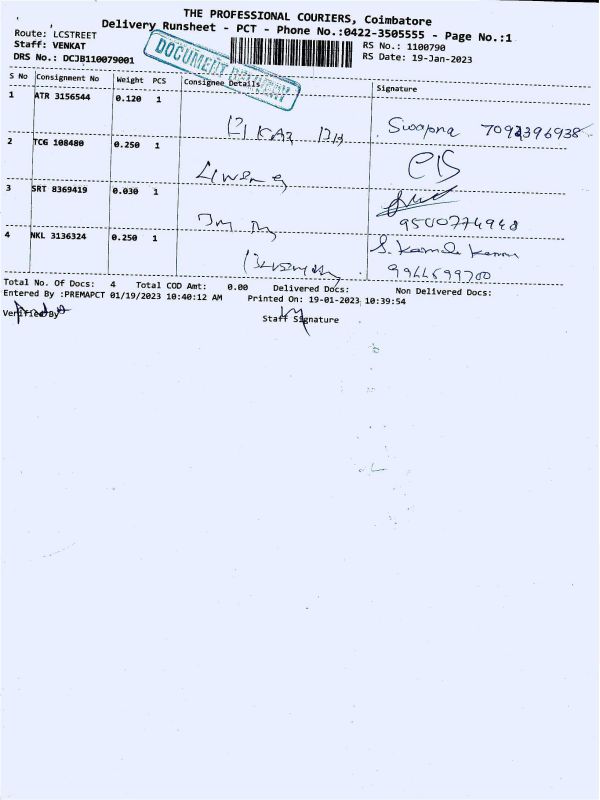 THE PROFESSIONAL COURIERS, Coimbatore
Delivery Runsheet - PCT - Phone No.:0422-3505555 - Page No.:1
Route: LCSTREET
Staff: VENKAT
DRS No.: DCJB110079001
RS No.: 1100790
RS Date: 19-Jan-2023
DOCUMENT
S No Consignment No Weight PCS Consignee Details Signature
1 ATR 3156544 0.120 1 Swapna 7092396938
2 TCG 108480 0.250 1
3 SRT 8369419 0.030 1 9500774948
4 NKL 3136324 0.250 1 S. Kamala Kannan
9944599700
Total No. Of Docs: 4 Total COD Amt: 0.00 Delivered Docs: Non Delivered Docs:
Entered By :PREMAPCT 01/19/2023 10:40:12 AM Printed On: 19-01-2023 10:39:54
Verified By
Staff Signature